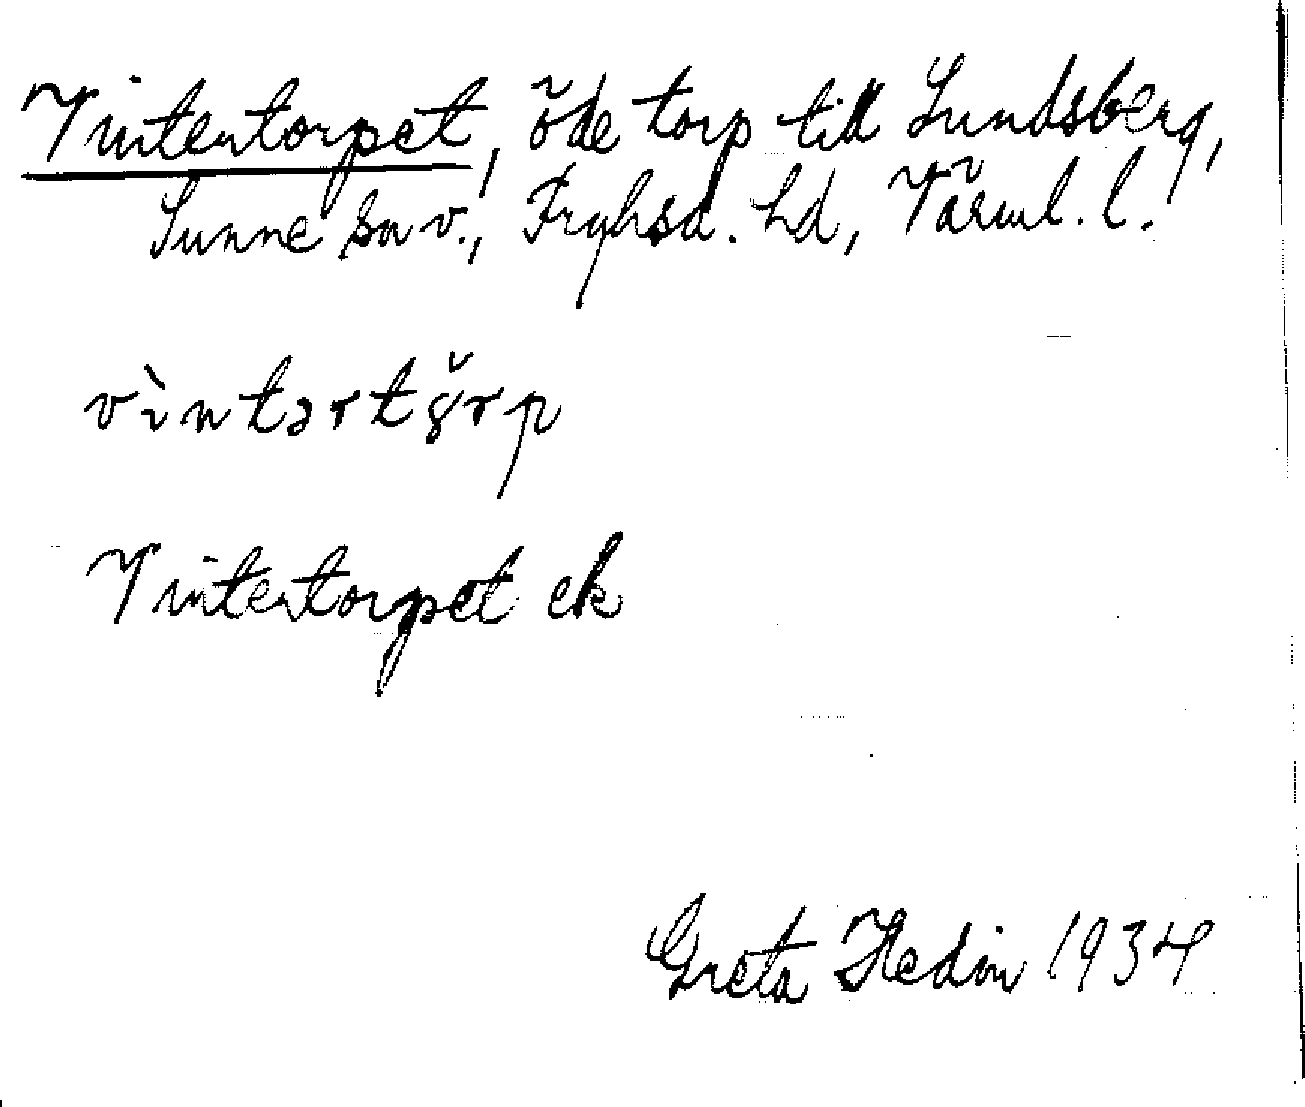 Vintertorpet, öde torp till Lundsberg,
Sunne snv., Fryksd. hd, Värml. l.
vìntərtȣ̌rp
Vintertorpet ek
Greta Hedin 1934